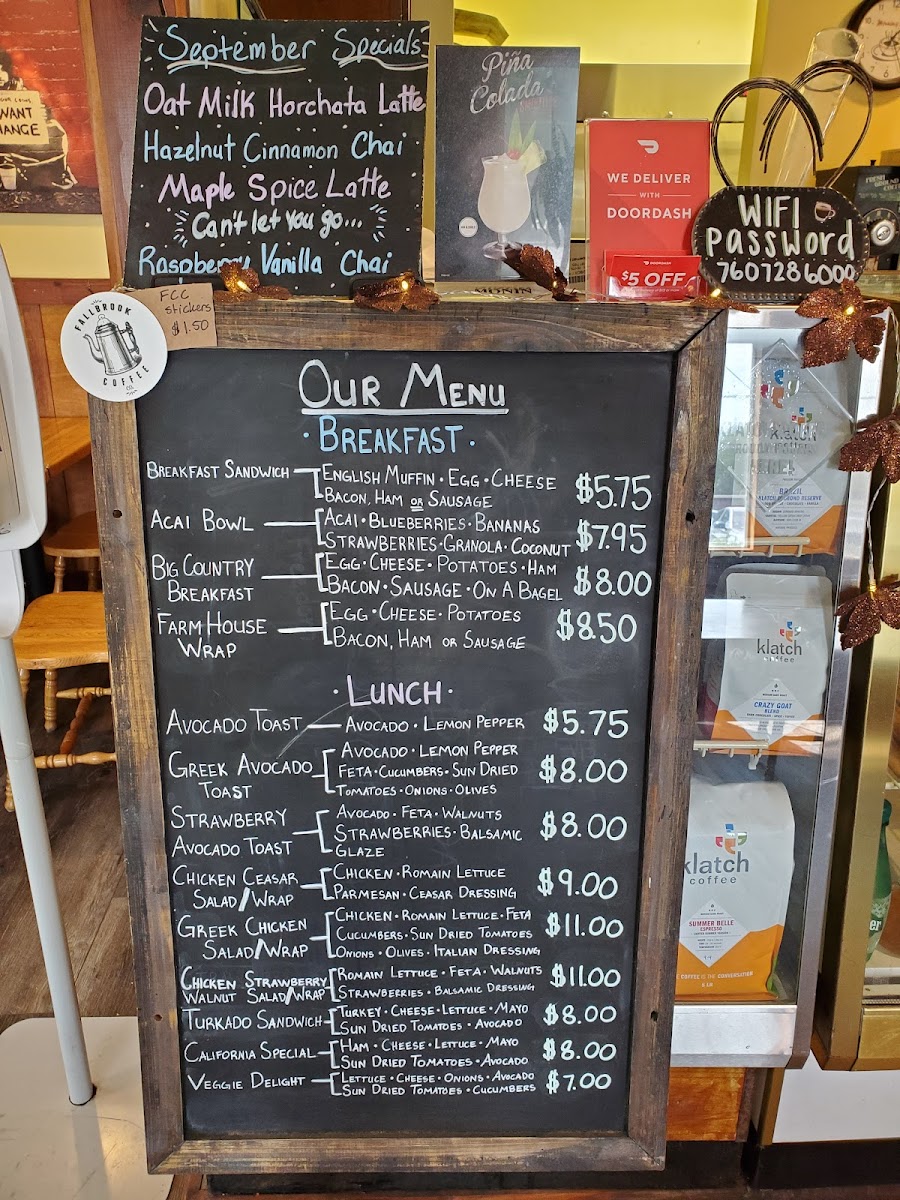 September Specials
Oat Milk Horchata Latte
Hazelnut Cinnamon Chai
Maple Spice Latte
Can't let you go...
Raspberry Vanilla Chai
Piña
Colada
WE DELIVER
WITH
DOORDASH
DOORDASH
$5 OFF
WIFI
PASSWORD
7607286000
WANT
HANGE
FCC
stickers
$1.50
FALLBROOK
COFFEE
CO.
OUR MENU
· BREAKFAST ·
BREAKFAST SANDWICH
ENGLISH MUFFIN · EGG · CHEESE
BACON, HAM OR SAUSAGE
$5.75
ACAI BOWL
ACAI · BLUEBERRIES · BANANAS
STRAWBERRIES · GRANOLA · COCONUT
$7.95
BIG COUNTRY
BREAKFAST
EGG · CHEESE · POTATOES · HAM
BACON · SAUSAGE · ON A BAGEL
$8.00
FARM HOUSE
WRAP
EGG · CHEESE · POTATOES
BACON, HAM OR SAUSAGE
$8.50
· LUNCH ·
AVOCADO TOAST
AVOCADO · LEMON PEPPER
$5.75
GREEK AVOCADO
TOAST
AVOCADO · LEMON PEPPER
FETA · CUCUMBERS · SUN DRIED
TOMATOES · ONIONS · OLIVES
$8.00
STRAWBERRY
AVOCADO TOAST
AVOCADO · FETA · WALNUTS
STRAWBERRIES · BALSAMIC
GLAZE
$8.00
CHICKEN CEASAR
SALAD/WRAP
CHICKEN · ROMAIN LETTUCE
PARMESAN · CEASAR DRESSING
$9.00
GREEK CHICKEN
SALAD/WRAP
CHICKEN · ROMAIN LETTUCE · FETA
CUCUMBERS · SUN DRIED TOMATOES
ONIONS · OLIVES · ITALIAN DRESSING
$11.00
CHICKEN STRAWBERRY
WALNUT SALAD/WRAP
ROMAIN LETTUCE · FETA · WALNUTS
STRAWBERRIES · BALSAMIC DRESSING
$11.00
TURKADO SANDWICH
TURKEY · CHEESE · LETTUCE · MAYO
SUN DRIED TOMATOES · AVOCADO
$8.00
CALIFORNIA SPECIAL
HAM · CHEESE · LETTUCE · MAYO
SUN DRIED TOMATOES · AVOCADO
$8.00
VEGGIE DELIGHT
LETTUCE · CHEESE · ONIONS · AVOCADO
SUN DRIED TOMATOES · CUCUMBERS
$7.00
klatch
BRAZIL
klatch
coffee
CRAZY GOAT
BLEND
klatch
coffee
SUMMER BELLE
ESPRESSO
COFFEE IS THE CONVERSATION